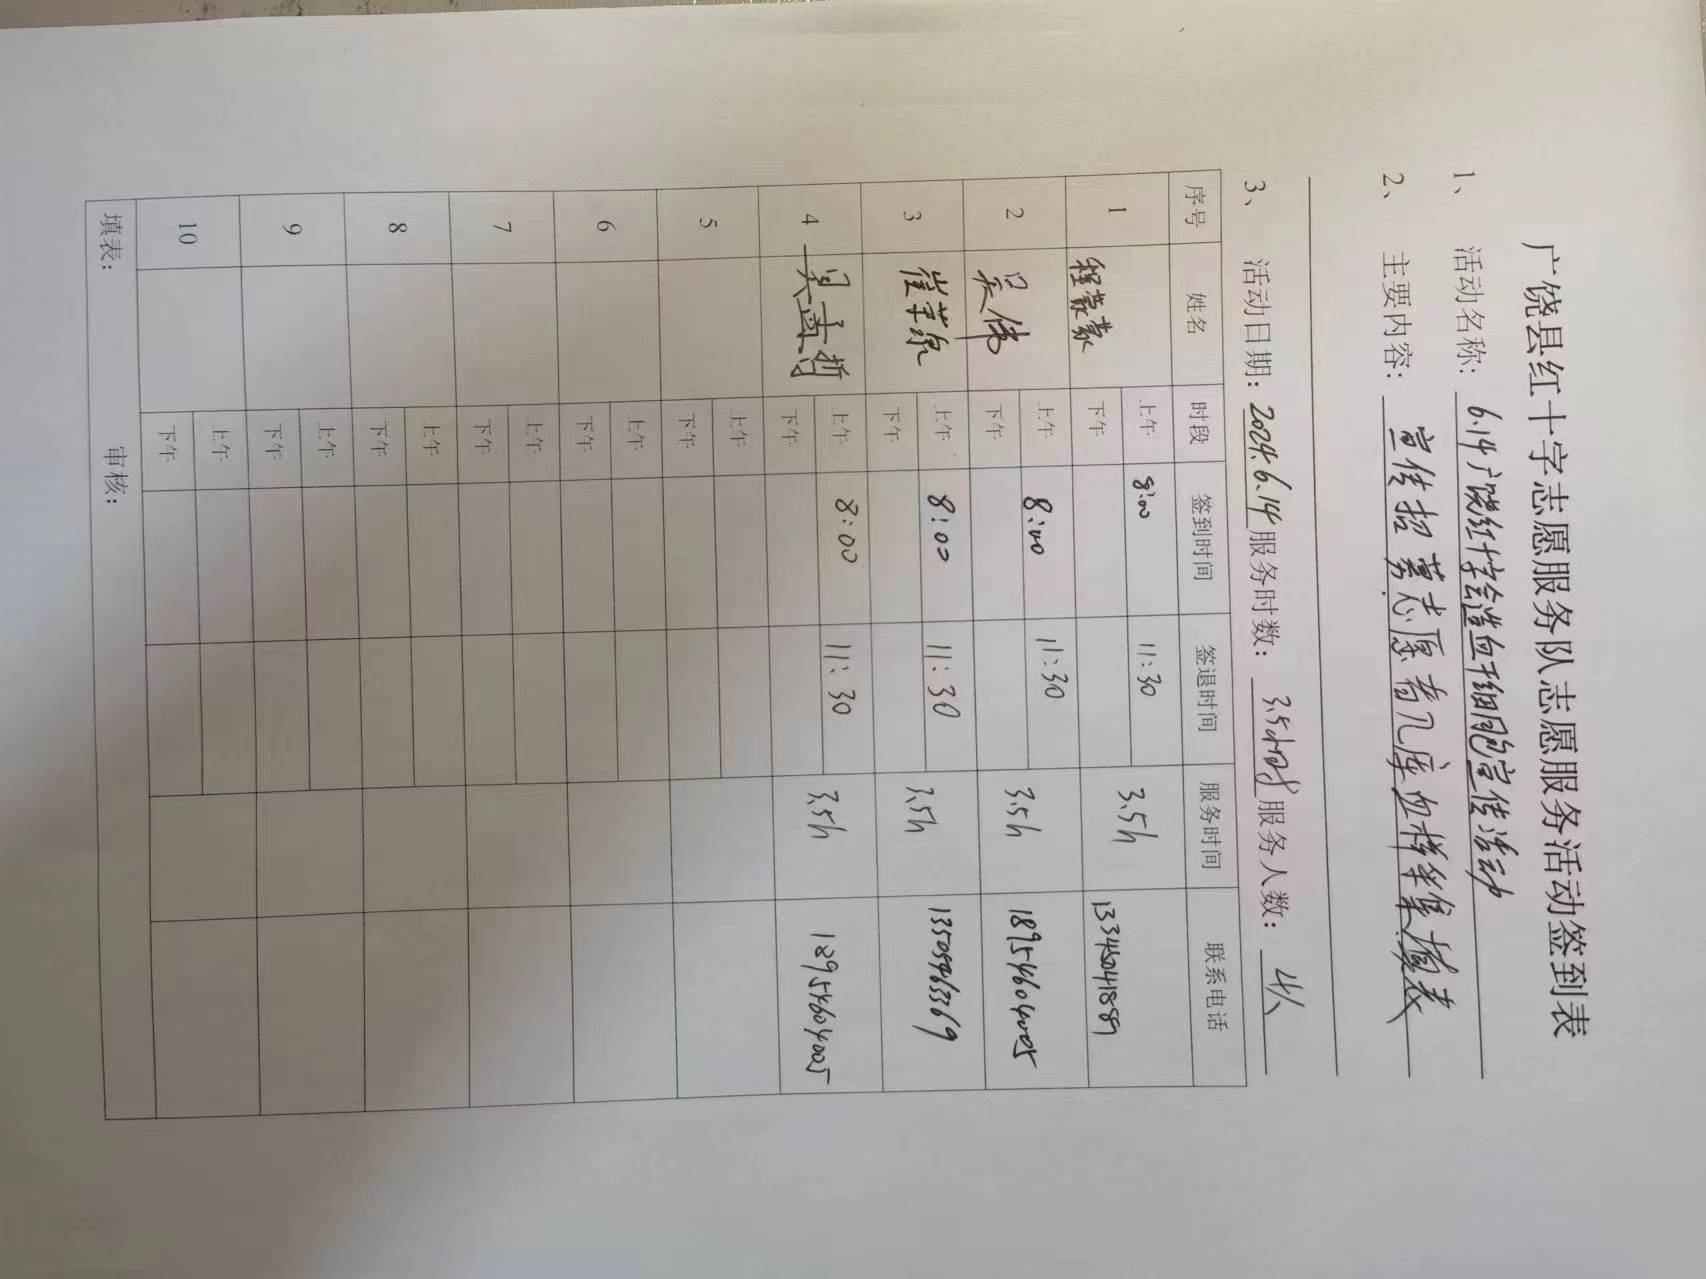 广饶县红十字志愿服务队志愿服务活动签到表
1、 活动名称: 6.14广饶红十字会造血干细胞宣传活动
2、 主要内容: 宣传招募志愿者入库血样采集填表
3、 活动日期: 2024.6.14 服务时数: 3.5小时 服务人数: 4人
序号 姓名 时段 签到时间 签退时间 服务时间 联系电话
1 程蒙蒙 上午 8:00 11:30 3.5h 13345041889
下午
2 吴伟 上午 8:00 11:30 3.5h 18954604005
下午
3 崔 上午 8:00 11:30 3.5h 13505463369
下午
4 吴尊哲 上午 8:00 11:30 3.5h 18954604005
下午
5 上午
下午
6 上午
下午
7 上午
下午
8 上午
下午
9 上午
下午
10 上午
下午
填表: 审核: